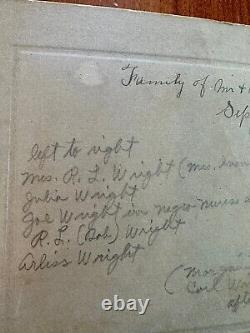 Family of Mr +
Sep
left to right
Mrs. R. L. Wright (Mrs.
Julia Wright
Joe Wright in negro nurse
R. L. (Bob) Wright
Arliss Wright
(Morgan
Carl
aft
ebay